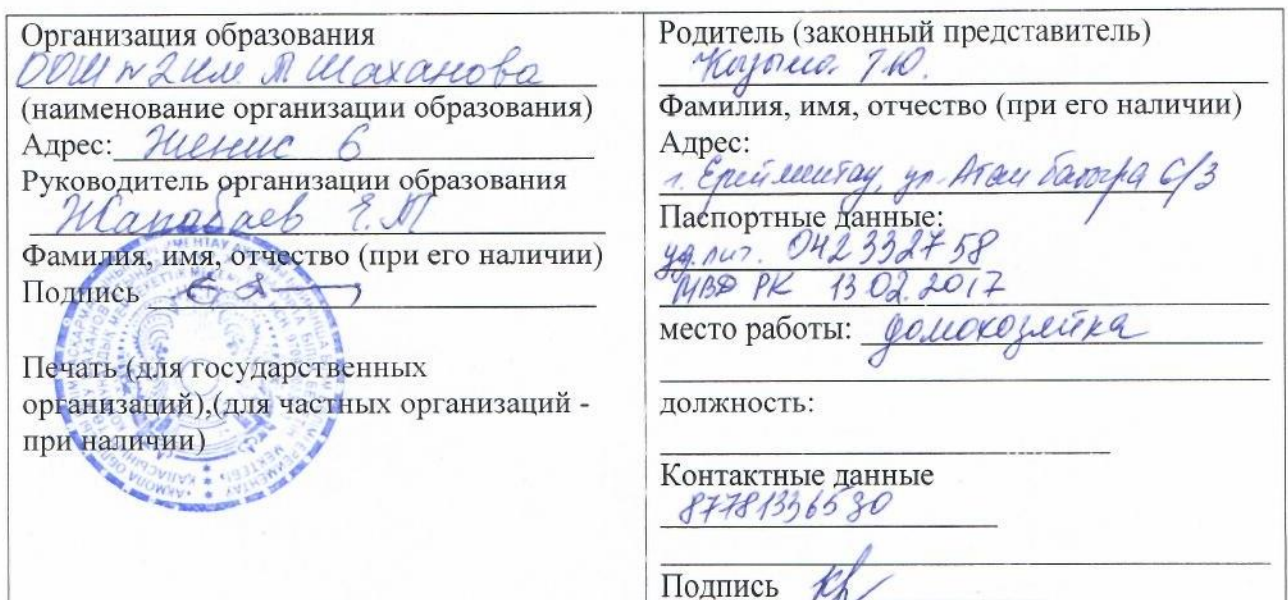 Организация образования
ООШ №2 им М Шаханова
(наименование организации образования)
Адрес: Женис 6
Руководитель организации образования
Жапабаев Е.М
Фамилия, имя, отчество (при его наличии)
Подпись
Печать (для государственных
организаций),(для частных организаций -
при наличии)
Родитель (законный представитель)
Т.Ю.
Фамилия, имя, отчество (при его наличии)
Адрес:
г. Ерейментау, ул. Атан батыра 6/3
Паспортные данные:
уд. лич. 042332758
МВД РК 13 02.2017
место работы: домохозяйка
должность:
Контактные данные
87781336530
Подпись